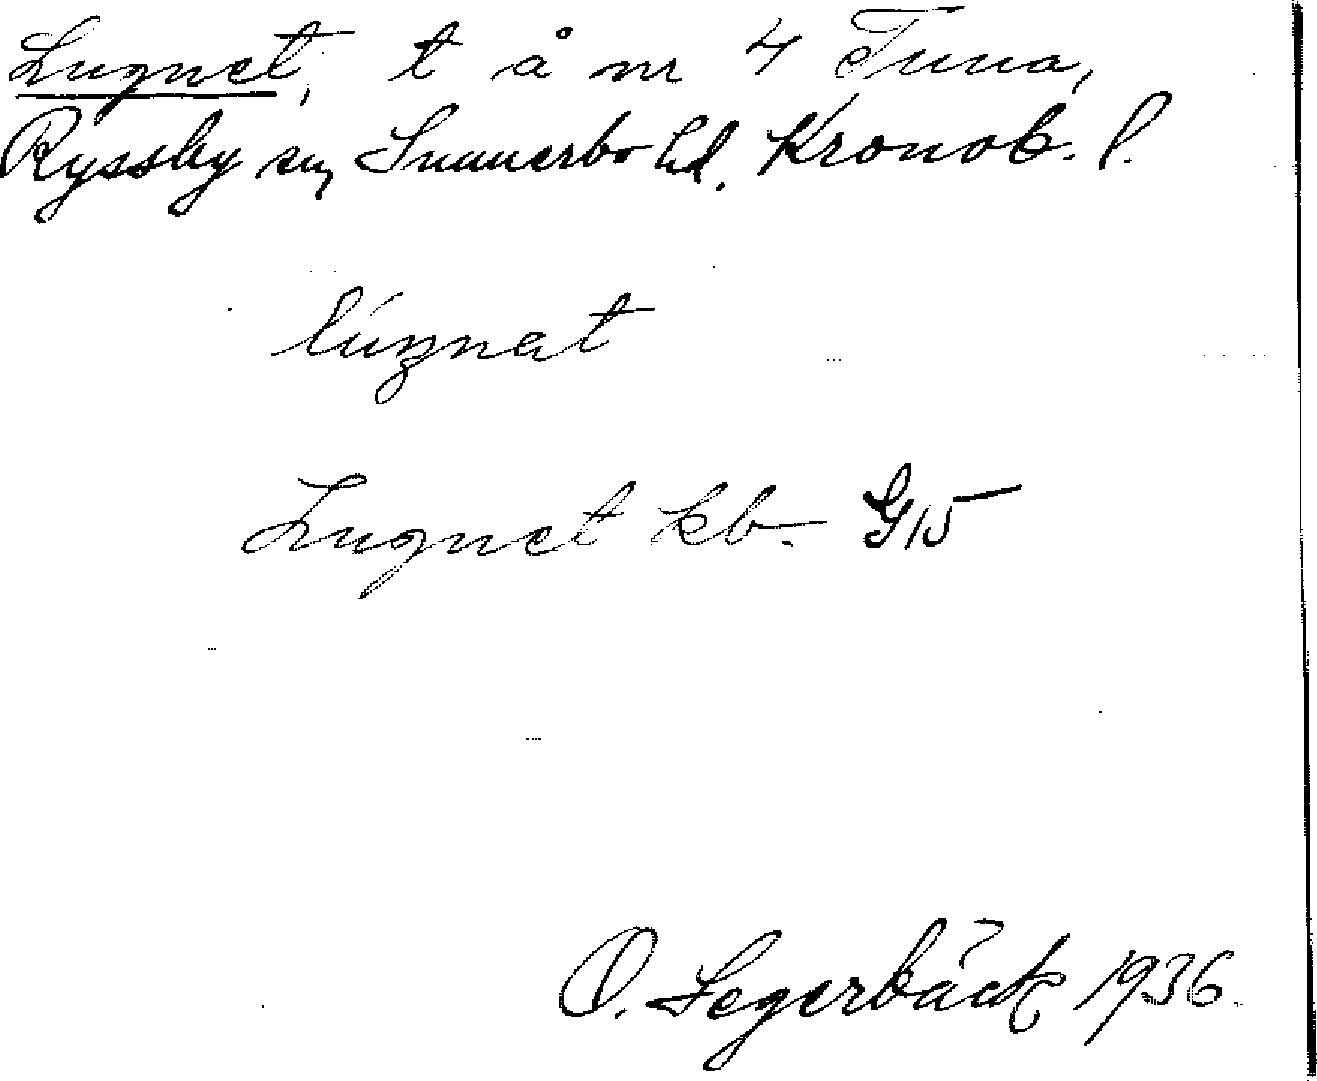 Lugnet, t å nr 4 Tuna,
Ryssby sn, Sunnerbo hd. Kronob. l.
lúŋnat
Lugnet kb. G15
O. Segerbäck 1936.